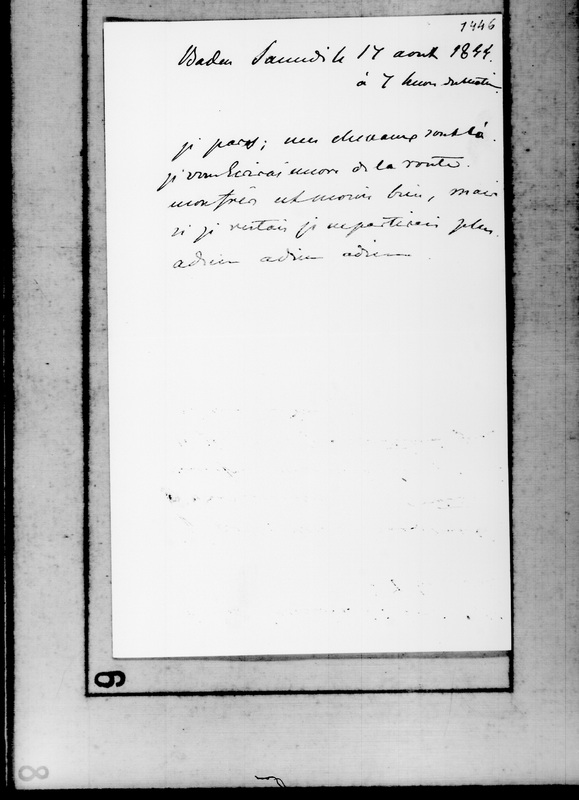 1446
Baden Samedi le 17 aout 1844.
à 7 heures du matin.
je pars; mes chevaux sont là.
je vous écrirai encore de la route.
mon frère est moins bien, mais
si je restais je ne partirais plus.
adieu adieu adieu.
6
8